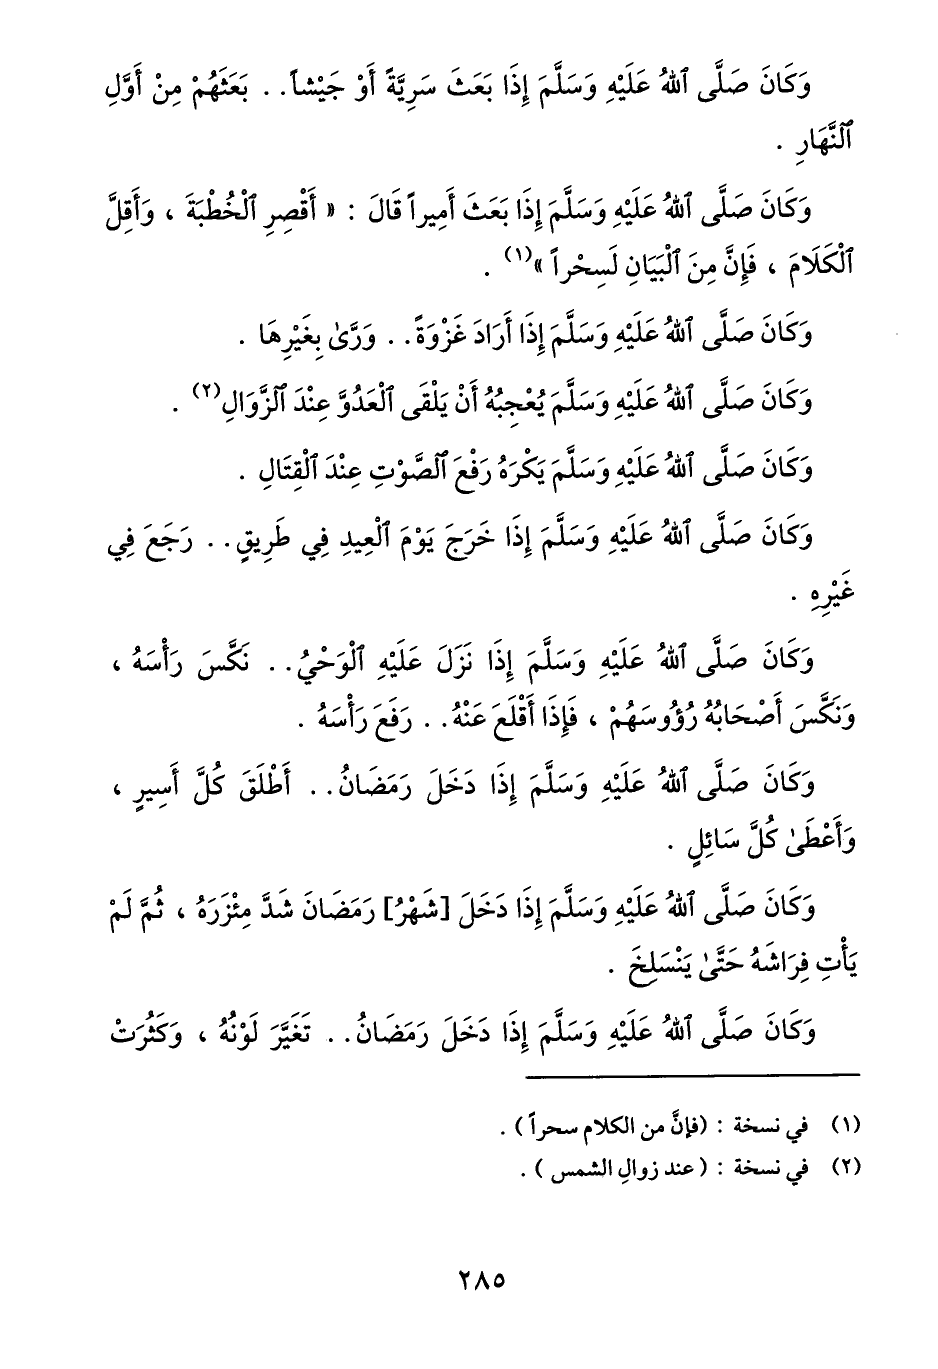 وَكَانَ صَلَّى ٱللهُ عَلَيْهِ وَسَلَّمَ إِذَا بَعَثَ سَرِيَّةً أَوْ جَيْشاً.. بَعَثَهُمْ مِنْ أَوَّلِ
ٱلنَّهَارِ .
وَكَانَ صَلَّى ٱللهُ عَلَيْهِ وَسَلَّمَ إِذَا بَعَثَ أَمِيراً قَالَ : « أَقْصِرِ ٱلْخُطْبَةَ ، وَأَقِلَّ
ٱلْكَلَامَ ، فَإِنَّ مِنَ ٱلْبَيَانِ لَسِحْراً »(١) .
وَكَانَ صَلَّى ٱللهُ عَلَيْهِ وَسَلَّمَ إِذَا أَرَادَ غَزْوَةً.. وَرَّىٰ بِغَيْرِهَا .
وَكَانَ صَلَّى ٱللهُ عَلَيْهِ وَسَلَّمَ يُعْجِبُهُ أَنْ يَلْقَى ٱلْعَدُوَّ عِنْدَ ٱلزَّوَالِ(٢) .
وَكَانَ صَلَّى ٱللهُ عَلَيْهِ وَسَلَّمَ يَكْرَهُ رَفْعَ ٱلصَّوْتِ عِنْدَ ٱلْقِتَالِ .
وَكَانَ صَلَّى ٱللهُ عَلَيْهِ وَسَلَّمَ إِذَا خَرَجَ يَوْمَ ٱلْعِيدِ فِي طَرِيقٍ.. رَجَعَ فِي
غَيْرِهِ .
وَكَانَ صَلَّى ٱللهُ عَلَيْهِ وَسَلَّمَ إِذَا نَزَلَ عَلَيْهِ ٱلْوَحْيُ.. نَكَّسَ رَأْسَهُ ،
وَنَكَّسَ أَصْحَابُهُ رُؤُوسَهُمْ ، فَإِذَا أَقْلَعَ عَنْهُ.. رَفَعَ رَأْسَهُ .
وَكَانَ صَلَّى ٱللهُ عَلَيْهِ وَسَلَّمَ إِذَا دَخَلَ رَمَضَانُ.. أَطْلَقَ كُلَّ أَسِيرٍ ،
وَأَعْطَىٰ كُلَّ سَائِلٍ .
وَكَانَ صَلَّى ٱللهُ عَلَيْهِ وَسَلَّمَ إِذَا دَخَلَ [شَهْرُ] رَمَضَانَ شَدَّ مِئْزَرَهُ ، ثُمَّ لَمْ
يَأْتِ فِرَاشَهُ حَتَّىٰ يَنْسَلِخَ .
وَكَانَ صَلَّى ٱللهُ عَلَيْهِ وَسَلَّمَ إِذَا دَخَلَ رَمَضَانُ.. تَغَيَّرَ لَوْنُهُ ، وَكَثُرَتْ
(١) في نسخة : (فإنَّ من الكلام سحراً ) .
(٢) في نسخة : ( عند زوالِ الشمس ) .
٢٨٥